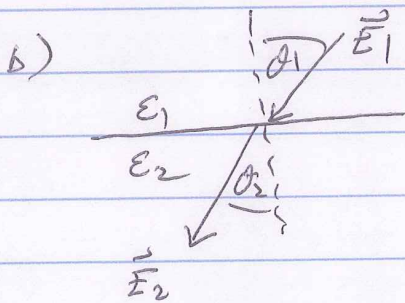 b)
θ1
E⃗1
ε1
ε2
θ2
E⃗2